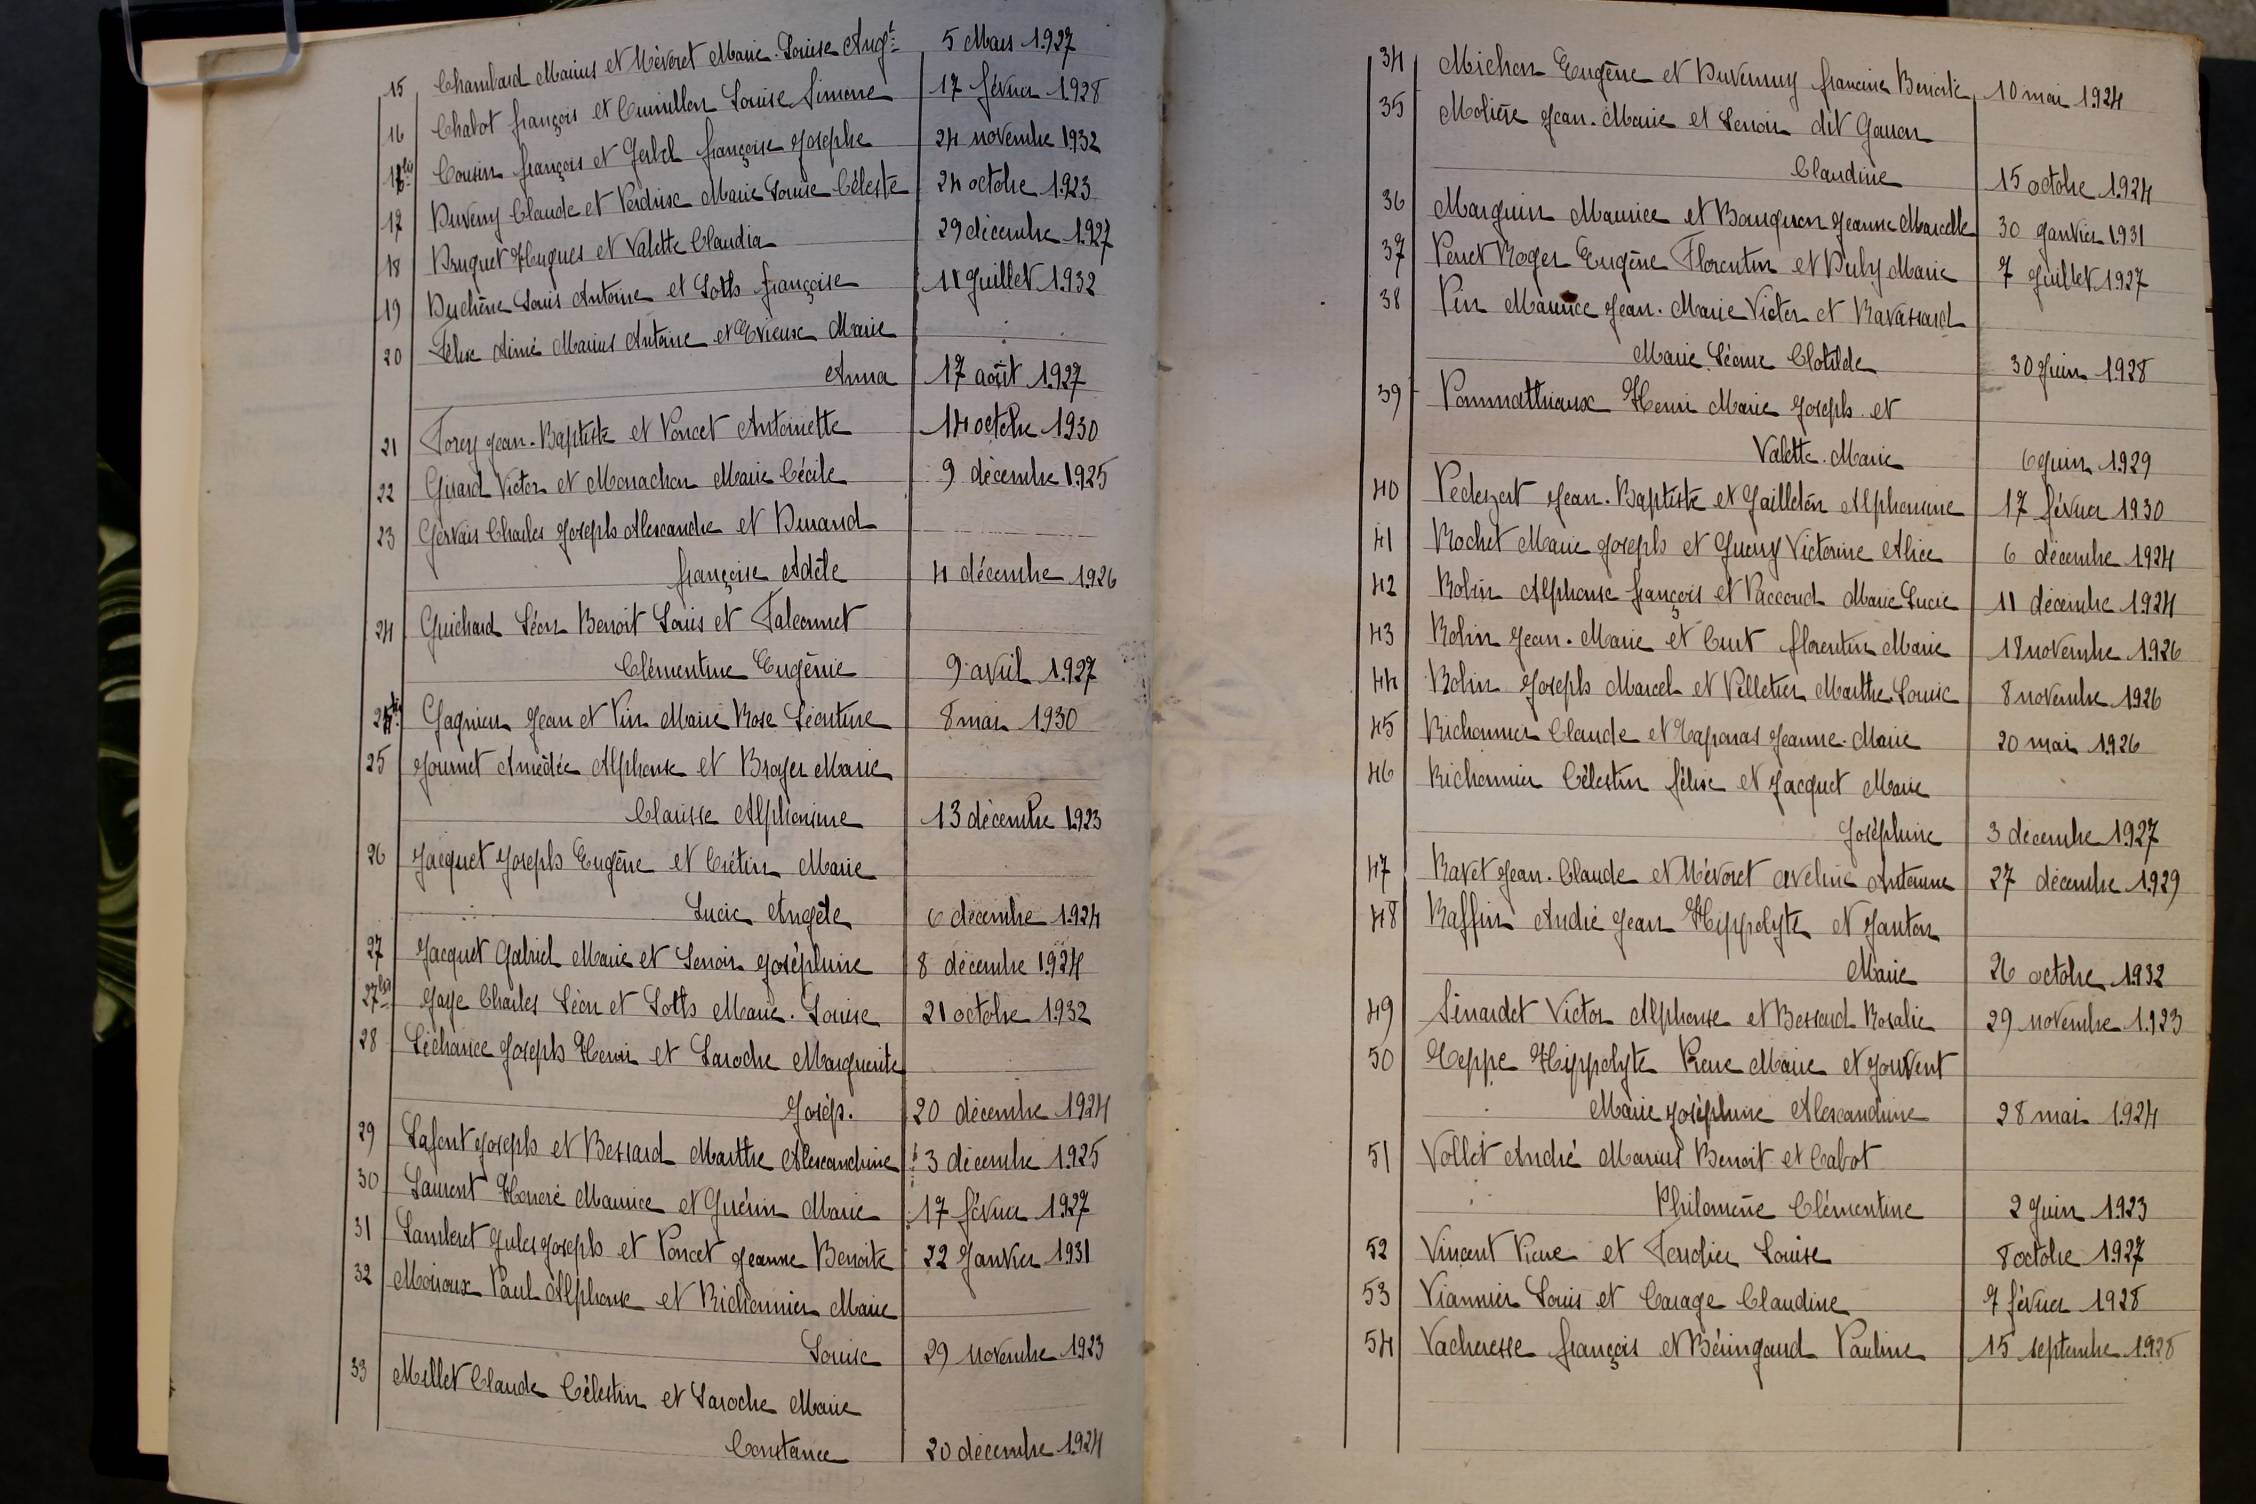 15 Chambard Marius et Mévoret Marie-Louise Augte 5 Mars 1927
16 Chabot françois et Cuinillon Louise Simone 17 février 1928
16bis Cousin françois et Gerbel françoise Josèphe 24 novembre 1932
17 Duverny Claude et Perdrix Marie Louise Céleste 24 octobre 1923
18 Druguet Hugues et Valette Claudia 29 décembre 1927
19 Duchêne Louis Antoine et Loth françoise 11 Juillet 1932
20 Félix Aimé Marius Antoine et Evieux Marie
Anna 17 août 1927
21 Forey Jean-Baptiste et Poncet Antoinette 14 octobre 1930
22 Girard Victor et Monachon Marie Cécile 9 décembre 1925
23 Gervais Charles Joseph Alexandre et Durand
françoise Adèle 4 décembre 1926
24 Guichard Léon Benoit Louis et Falconnet
Clémentine Eugénie 9 avril 1927
24bis Gagnieu Jean et Pin Marie Rose Léontine 8 mai 1930
25 Journet Amédée Alphonse et Broyer Marie
Clarisse Alphonsine 13 décembre 1923
26 Jacquet Joseph Eugène et Crétin Marie
Lucie Angèle 6 décembre 1924
27 Jacquet Gabriel Marie et Lenoir Joséphine 8 décembre 1924
27bis Jaye Charles Léon et Loth Marie-Louise 21 octobre 1932
28 Léchance Joseph Henri et Laroche Marguerite
Josép. 20 décembre 1924
29 Lafont Joseph et Bessard Marthe Alexandrine 3 décembre 1925
30 Laurent Honoré Maurice et Guérin Marie 17 février 1927
31 Lamberet Jules Joseph et Poncet Jeanne Benoite 22 Janvier 1931
32 Moiroux Paul Alphonse et Richonnier Marie
Louise 29 novembre 1923
33 Millet Claude Célestin et Laroche Marie
Constance 20 décembre 1924
34 Michon Eugène et Duvernay francine Benoite 10 mai 1924
35 Molière Jean-Marie et Lenoir dit Gouon
Claudine 15 octobre 1924
36 Marguin Maurice et Bouquron Jeanne Marcelle 30 Janvier 1931
37 Penet Roger Eugène Florentin et Duby Marie 7 Juillet 1927
38 Pin Maurice Jean-Marie Victor et Ravassard
Marie Léonie Clotilde 30 Juin 1928
39 Pommathiaux Henri Marie Joseph et
Valette Marie 6 Juin 1929
40 Pedezert Jean-Baptiste et Gailleton Alphonsine 17 février 1930
41 Rochet Marie Joseph et Guerry Victorine Alice 6 décembre 1924
42 Robin Alphonse françois et Paccoud Marie Lucie 11 décembre 1924
43 Robin Jean-Marie et Curt florentin Marie 18 novembre 1926
44 Robin Joseph Marcel et Pelletier Marthe Louise 8 novembre 1926
45 Richonnier Claude et Taponas Jeanne-Marie 20 mai 1926
46 Richonnier Célestin félix et Jacquet Marie
Joséphine 3 décembre 1927
47 Ravet Jean-Claude et Mévoret aveline Antonine 27 décembre 1929
48 Raffin André Jean Hippolyte et Janton
Marie 26 octobre 1932
49 Sinardet Victor Alphonse et Bessard Rosalie 29 novembre 1923
50 Teppe Hippolyte Pierre Marie et Jouvent
Marie Joséphine Alexandrine 28 mai 1924
51 Vollet André Marius Benoit et Cabot
Philomène Clémentine 2 Juin 1923
52 Vincent Pierre et Ferrdier Louise 8 octobre 1927
53 Viannier Louis et Carage Claudine 7 février 1928
54 Vacheresse françois et Béringaud Pauline 15 septembre 1928